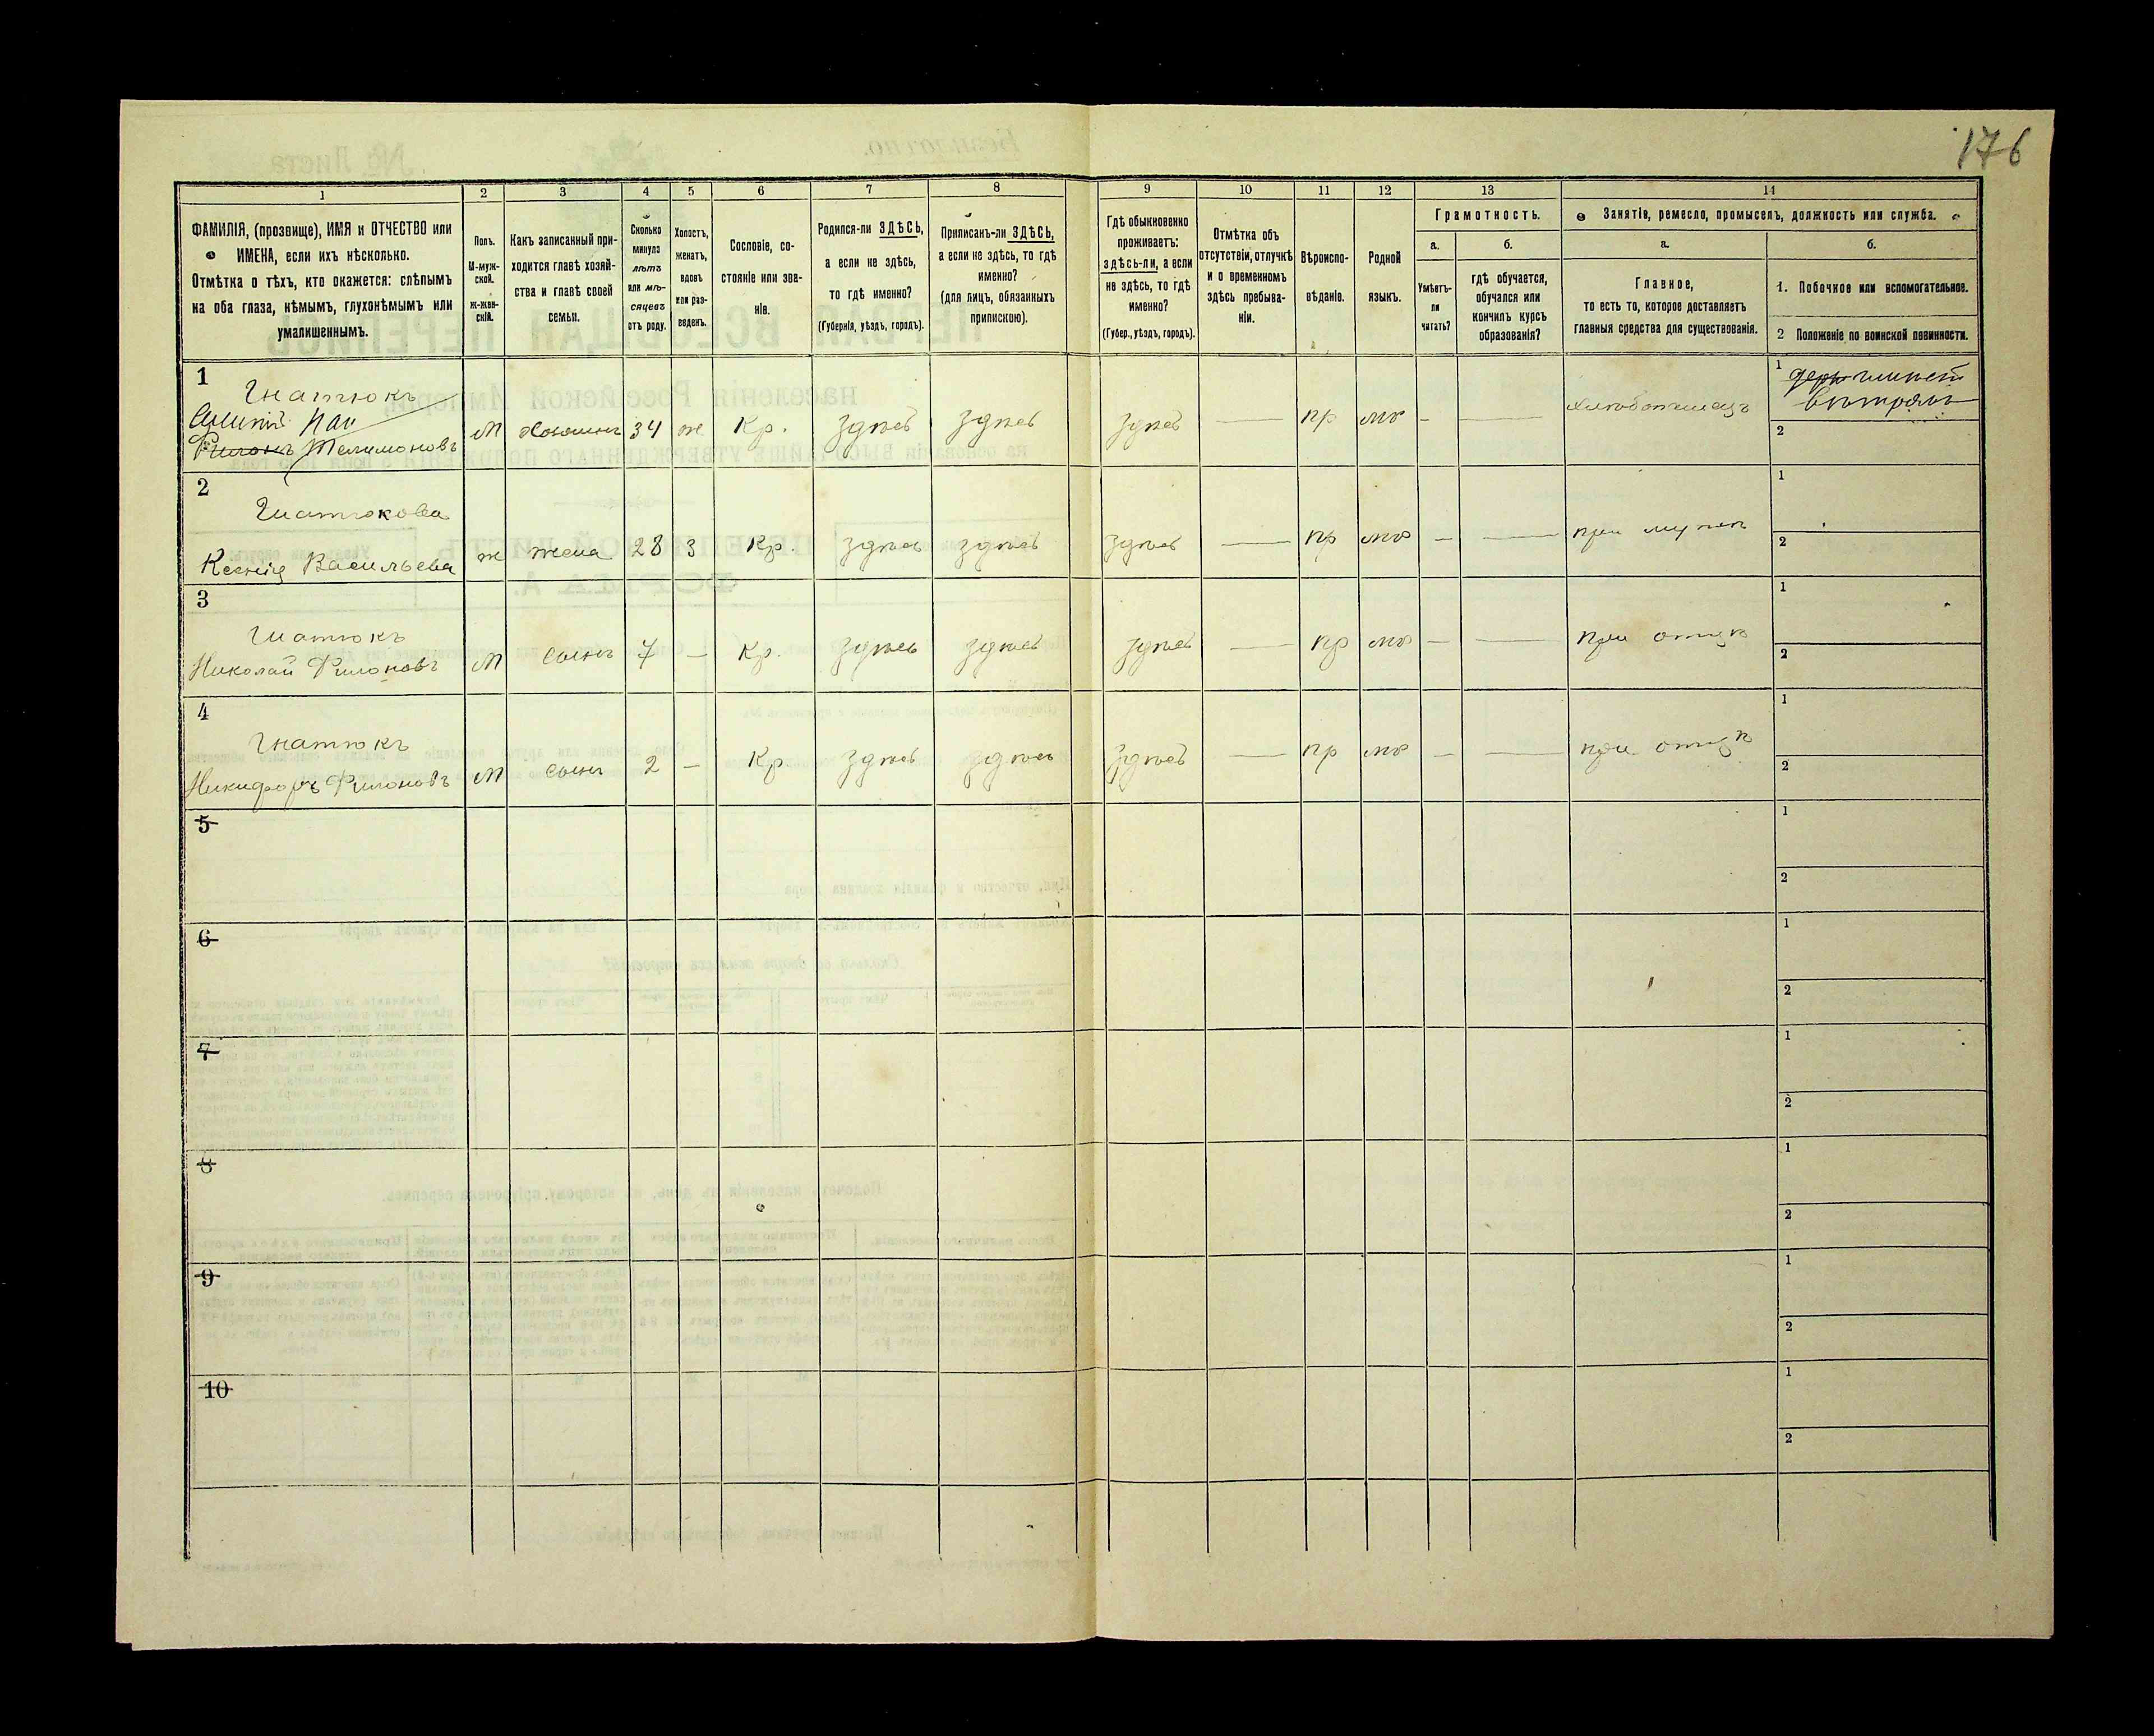 176
1 2 3 4 5 6 7 8 9 10 11 12 13 14
ФАМИЛІЯ, (прозвище), ИМЯ и ОТЧЕСТВО или
ИМЕНА, если ихъ нѣсколько.
Отмѣтка о тѣхъ, кто окажется: слѣпымъ
на оба глаза, нѣмымъ, глухонѣмымъ или
умалишеннымъ.
Полъ.
М-муж-
ской.
Ж-жен-
скій.
Какъ записанный при-
ходится главѣ хозяй-
ства и главѣ своей
семьи.
Сколько
минуло
лѣтъ
или мѣ-
сяцевъ
отъ роду.
Холостъ,
женатъ,
вдовъ
или раз-
веденъ.
Сословіе, со-
стояніе или зва-
ніе.
Родился-ли ЗДѢСЬ,
а если не здѣсь,
то гдѣ именно?
(Губернія, уѣздъ, городъ).
Приписанъ-ли ЗДѢСЬ,
а если не здѣсь, то гдѣ
именно?
(для лицъ, обязанныхъ
припискою).
Гдѣ обыкновенно
проживаетъ:
здѣсь-ли, а если
не здѣсь, то гдѣ
именно?
(Губер., уѣздъ, городъ).
Отмѣтка объ
отсутствіи, отлучкѣ
и о временномъ
здѣсь пребыва-
ніи.
Вѣроиспо-
вѣданіе.
Родной
языкъ.
Грамотность.
а.
Умѣетъ-
ли
читать?
б.
гдѣ обучается,
обучался или
кончилъ курсъ
образованія?
Занятіе, ремесло, промыселъ, должность или служба.
а.
Главное,
то есть то, которое доставляетъ
главныя средства для существованія.
б.
1. Побочное или вспомогательное.
2 Положеніе по воинской повинности.
1 Гнатюкъ
Филонъ Филимоновъ М хозяинъ 34 ж Кр. здѣсь здѣсь здѣсь — пр мр — — хлѣбопашецъ 1
2
2 Гнатюкова
Ксенія Васильева ж жена 28 з Кр. здѣсь здѣсь здѣсь — пр мр — — при мужѣ 1
2
3 Гнатюкъ
Николай Филоновъ М сынъ 7 — Кр. здѣсь здѣсь здѣсь — пр мр — — при отцѣ 1
2
4 Гнатюкъ
Никифоръ Филоновъ М сынъ 2 — Кр здѣсь здѣсь здѣсь — пр мр — — при отцѣ 1
2
5 1
2
6 1
2
7 1
2
8 1
2
9 1
2
10 1
2